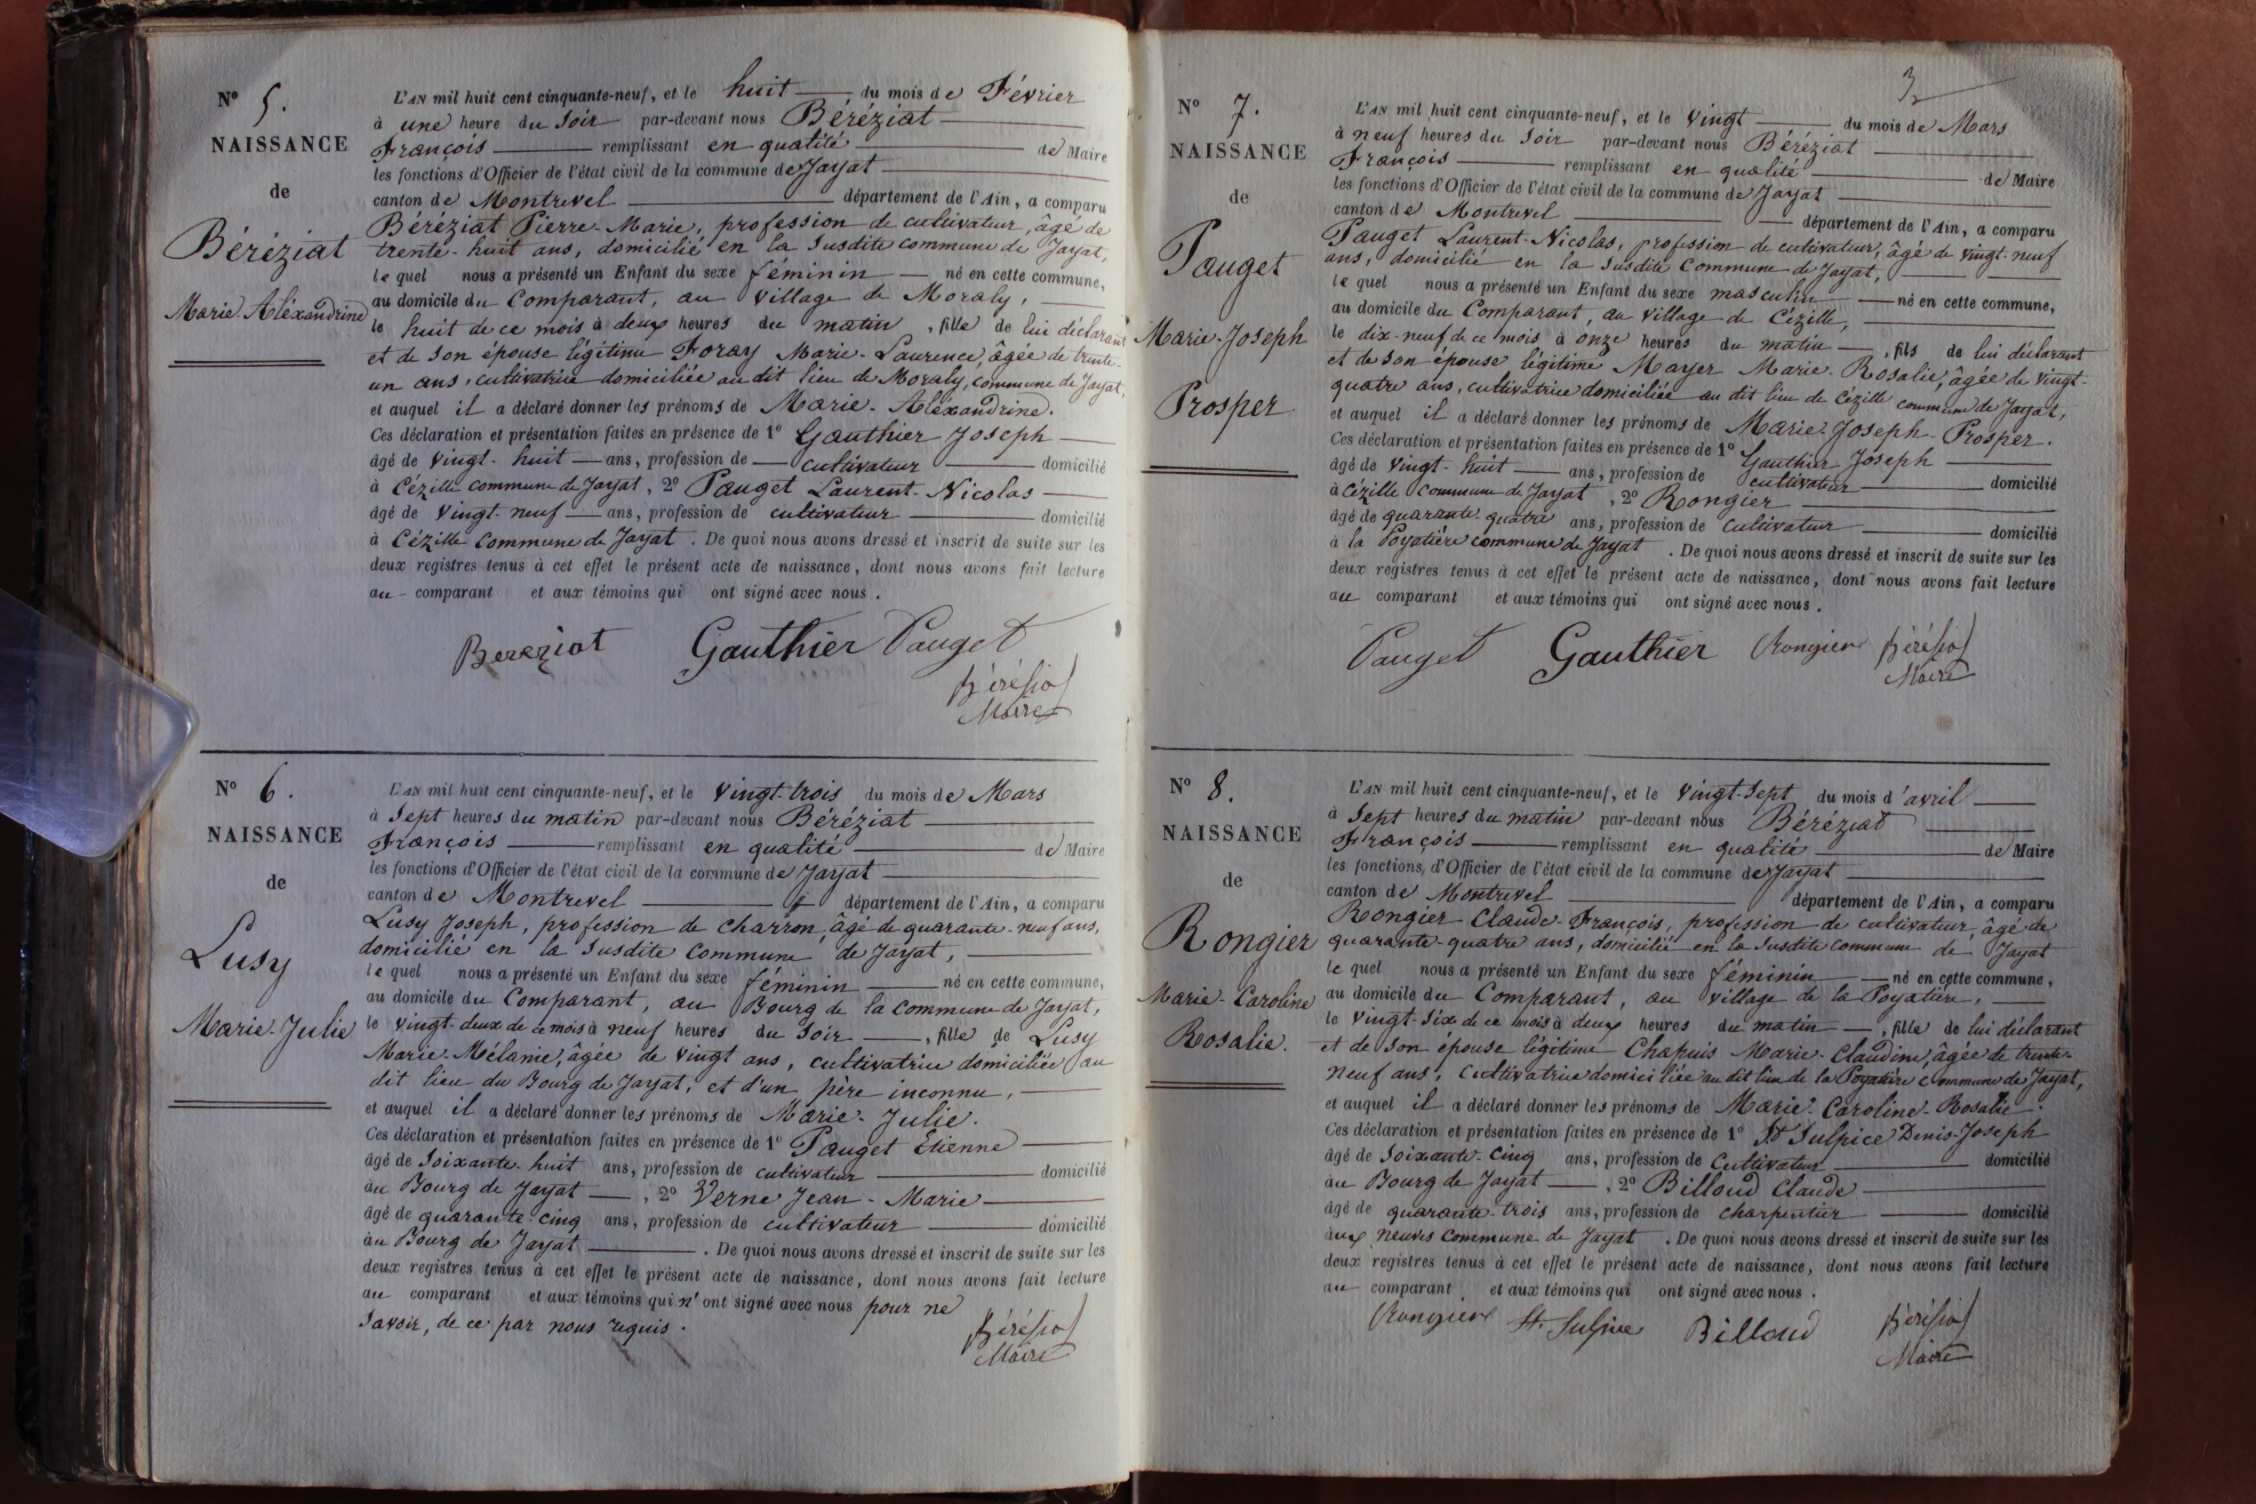 Nº 5.
NAISSANCE
de
Béréziat
Marie-Aléxandrine
L'AN mil huit cent cinquante-neuf, et le huit du mois de Février
à une heure du soir par-devant nous Béréziat
François remplissant en qualité de Maire
les fonctions d'Officier de l'état civil de la commune de Jayat
canton de Montrevel département de l'Ain, a comparu
Béréziat Pierre-Marie, profession de cultivateur, âgé de
trente-huit ans, domicilié en la susdite commune de Jayat,
le quel nous a présenté un Enfant du sexe féminin né en cette commune,
au domicile du Comparant, au village de Moraly,
le huit de ce mois à deux heures du matin, fille de lui déclarant
et de son épouse légitime Foray Marie-Laurence, âgée de trente-
un ans, cultivatrice domiciliée au dit lieu de Moraly, commune de Jayat,
et auquel il a déclaré donner les prénoms de Marie-Aléxandrine.
Ces déclaration et présentation faites en présence de 1º Gauthier Joseph
âgé de vingt-huit ans, profession de cultivateur domicilié
à Cézille commune de Jayat, 2º Pauget Laurent-Nicolas
âgé de vingt-neuf ans, profession de cultivateur domicilié
à Cézille commune de Jayat. De quoi nous avons dressé et inscrit de suite sur les
deux registres tenus à cet effet le présent acte de naissance, dont nous avons fait lecture
au comparant et aux témoins qui ont signé avec nous.
Bereziat Gauthier Pauget
Béréziat
Maire
Nº 6.
NAISSANCE
de
Lusy
Marie-Julie
L'AN mil huit cent cinquante-neuf, et le vingt-trois du mois de Mars
à sept heures du matin par-devant nous Béréziat
François remplissant en qualité de Maire
les fonctions d'Officier de l'état civil de la commune de Jayat
canton de Montrevel département de l'Ain, a comparu
Lusy Joseph, profession de charron, âgé de quarante-neuf ans,
domicilié en la susdite commune de Jayat,
le quel nous a présenté un Enfant du sexe féminin né en cette commune,
au domicile du Comparant, au Bourg de la commune de Jayat,
le vingt-deux de ce mois à neuf heures du soir, fille de Lusy
Marie-Mélanie, âgée de vingt ans, cultivatrice domiciliée au
dit lieu du Bourg de Jayat, et d'un père inconnu,
et auquel il a déclaré donner les prénoms de Marie-Julie.
Ces déclaration et présentation faites en présence de 1º Pauget Etienne
âgé de soixante-huit ans, profession de cultivateur domicilié
au Bourg de Jayat, 2º Verne Jean-Marie
âgé de quarante-cinq ans, profession de cultivateur domicilié
au Bourg de Jayat. De quoi nous avons dressé et inscrit de suite sur les
deux registres tenus à cet effet le présent acte de naissance, dont nous avons fait lecture
au comparant et aux témoins qui n'ont signé avec nous pour ne
savoir, de ce par nous requis.
Béréziat
Maire
3
Nº 7.
NAISSANCE
de
Pauget
Marie-Joseph
Prosper
L'AN mil huit cent cinquante-neuf, et le vingt du mois de Mars
à neuf heures du soir par-devant nous Béréziat
François remplissant en qualité de Maire
les fonctions d'Officier de l'état civil de la commune de Jayat
canton de Montrevel département de l'Ain, a comparu
Pauget Laurent-Nicolas, profession de cultivateur, âgé de vingt-neuf
ans, domicilié en la susdite commune de Jayat,
le quel nous a présenté un Enfant du sexe masculin né en cette commune,
au domicile du Comparant, au village de Cézille,
le dix-neuf de ce mois à onze heures du matin, fils de lui déclarant
et de son épouse légitime Mayer Marie-Rosalie, âgée de vingt-
quatre ans, cultivatrice domiciliée au dit lieu de Cézille commune de Jayat,
et auquel il a déclaré donner les prénoms de Marie-Joseph-Prosper.
Ces déclaration et présentation faites en présence de 1º Gauthier Joseph
âgé de vingt-huit ans, profession de cultivateur domicilié
à Cézille commune de Jayat, 2º Rongier
âgé de quarante-quatre ans, profession de cultivateur domicilié
à la Poyatière commune de Jayat. De quoi nous avons dressé et inscrit de suite sur les
deux registres tenus à cet effet le présent acte de naissance, dont nous avons fait lecture
au comparant et aux témoins qui ont signé avec nous.
Pauget Gauthier Rongier Béréziat
Maire
Nº 8.
NAISSANCE
de
Rongier
Marie-Caroline
Rosalie.
L'AN mil huit cent cinquante-neuf, et le vingt-sept du mois d'avril
à sept heures du matin par-devant nous Béréziat
François remplissant en qualité de Maire
les fonctions d'Officier de l'état civil de la commune de Jayat
canton de Montrevel département de l'Ain, a comparu
Rongier Claude-François, profession de cultivateur, âgé de
quarante-quatre ans, domicilié en la susdite commune de Jayat
le quel nous a présenté un Enfant du sexe féminin né en cette commune,
au domicile du Comparant, au village de la Poyatière,
le vingt-six de ce mois à deux heures du matin, fille de lui déclarant
et de son épouse légitime Chapuis Marie-Claudine, âgée de trente-
neuf ans, cultivatrice domiciliée au dit lieu de la Poyatière commune de Jayat,
et auquel il a déclaré donner les prénoms de Marie-Caroline-Rosalie.
Ces déclaration et présentation faites en présence de 1º St Sulpice Denis-Joseph
âgé de soixante-cinq ans, profession de cultivateur domicilié
au Bourg de Jayat, 2º Billoud Claude
âgé de quarante-trois ans, profession de charpentier domicilié
aux neuves commune de Jayat. De quoi nous avons dressé et inscrit de suite sur les
deux registres tenus à cet effet le présent acte de naissance, dont nous avons fait lecture
au comparant et aux témoins qui ont signé avec nous.
Rongier St. Sulpice Billoud Béréziat
Maire